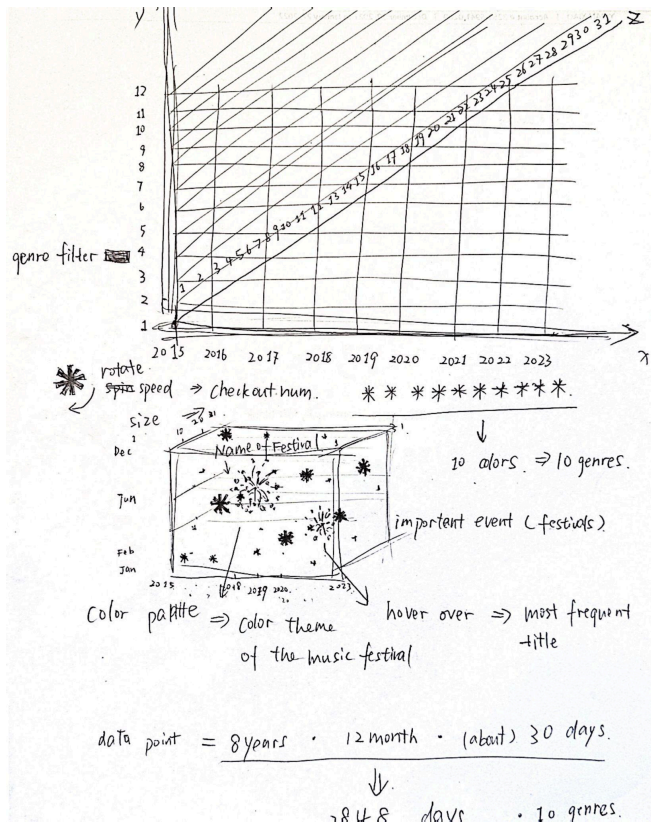 y
z
12
11
10
9
8
7
6
5
4
3
2
1
genre filter
1 2 3 4 5 6 7 8 9 10 11 12 13 14 15 16 17 18 19 20 21 22 23 24 25 26 27 28 29 30 31
2015 2016 2017 2018 2019 2020 2021 2022 2023
x
rotate
spin speed ⇒ checkout num.
* * * * * * * * * *
size
Dec
Name of Festival
10 colors. ⇒ 10 genres.
Jun
importent event (festivals)
Feb
Jan
2015 2018 2019 2020 2023
color palette ⇒ color theme
of the music festival
hover over ⇒ most frequent
title
data point = 8 years · 12 month · (about) 30 days.
2848 days · 10 genres.